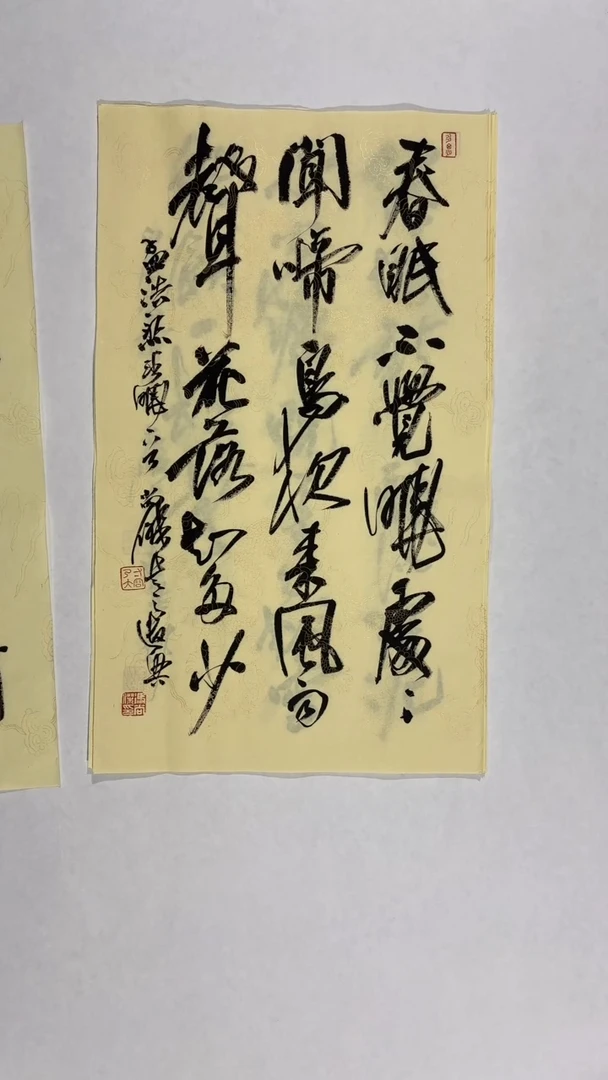 春眠不覺曉處〻
聞啼鳥夜來風雨
聲花落知多少
孟浩然春曉一首